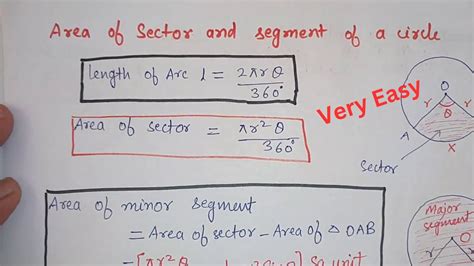 Area of Sector and segment of a circle
Length of Arc l = 2πrθ / 360°
Very Easy
Area of sector = πr²θ / 360°
O
r
θ
A
X
Sector
Area of minor segment
= Area of sector - Area of △ OAB
= [πr²θ
Sq unit
Major
segment
O
r